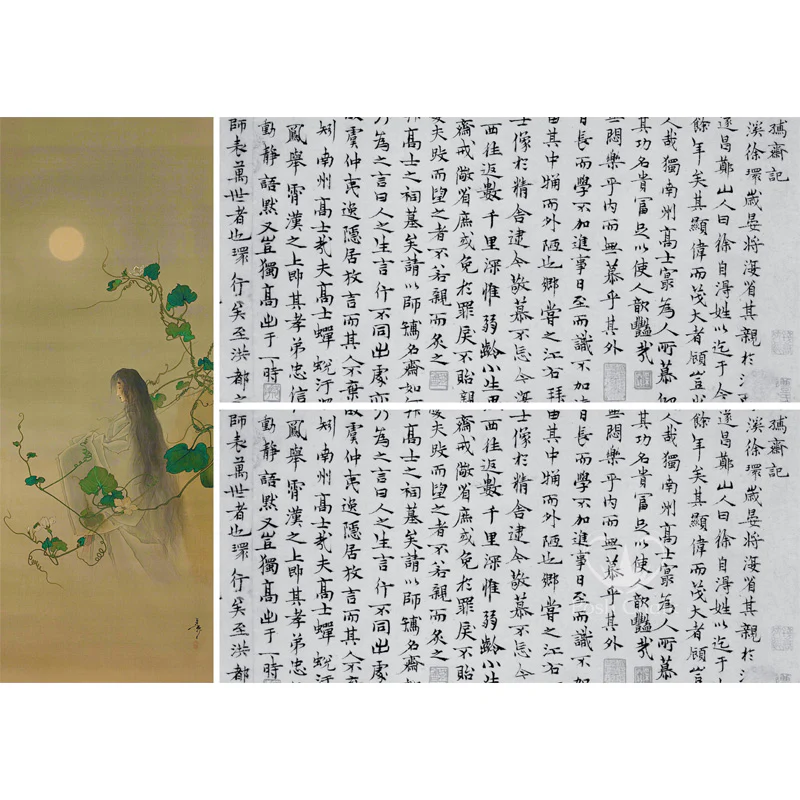 孺齋記
溪徐環歲晏將省其親於
遂昌鄭山人曰徐自得姓以迄于今
餘年矣其顯偉而茂大者顧豈少
人哉獨南州高士寔為人所慕仰
其功名貴富足以使人歆艷哉
無悶樂乎內而無慕乎其外
日長而學不加進事日至而識不加
其中而外陋也鄉嘗之江右拜
士像於精舍逮今敬慕不忘今海
西往返數千里深惟弱齡小生思
齋戒儆省庶或免於罪戾不貽
夫跂而望之者不若親而炙之
高士之祠墓矣請以師孺名齋如何
乃為之言曰人之生言行不同出處亦
故虞仲夷逸隱居放言而其人不棄
矧南州高士哉夫高士蟬蛻汙
鳳舉霄漢之上即其孝弟忠信
動靜語默又豈獨高出于一時
師表萬世者也環行矣至洪都之
孺齋記
溪徐環歲晏將省其親於
遂昌鄭山人曰徐自得姓以迄于今
餘年矣其顯偉而茂大者顧豈
人哉獨南州高士寔為人所慕
其功名貴富足以使人歆艷哉
無悶樂乎內而無慕乎其外
日長而學不加進事日至而識不加
其中而外陋也鄉嘗之江右
士像於精舍逮今敬慕不忘今
西往返數千里深惟弱齡小生
齋戒儆省庶或免於罪戾不貽
夫跂而望之者不若親而炙之
高士之祠墓矣請以師孺名齋如
乃為之言曰人之生言行不同出處
故虞仲夷逸隱居放言而其人不棄
矧南州高士哉夫高士蟬蛻汙
鳳舉霄漢之上即其孝弟忠信
動靜語默又豈獨高出于一時
師表萬世者也環行矣至洪都